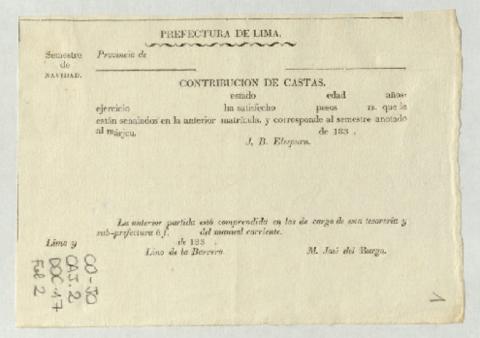 PREFECTURA DE LIMA.
Semestre de NAVIDAD.
Provincia de
CONTRIBUCION DE CASTAS.
estado edad años
ejercicio ha satisfecho pesos rs. que le
están señalados en la anterior matrícula, y corresponde al semestre anotado
al márjen. de 183 .
J. B. Elespuru.
La anterior partida está comprendida en las de cargo de esta tesorería y
sub-prefectura á f. del manual corriente.
Lima y de 183 .
Lino de la Barrera. M. José del Burgo.
CO-30
CAJ. 2
DOC. 17
Fol 2
1